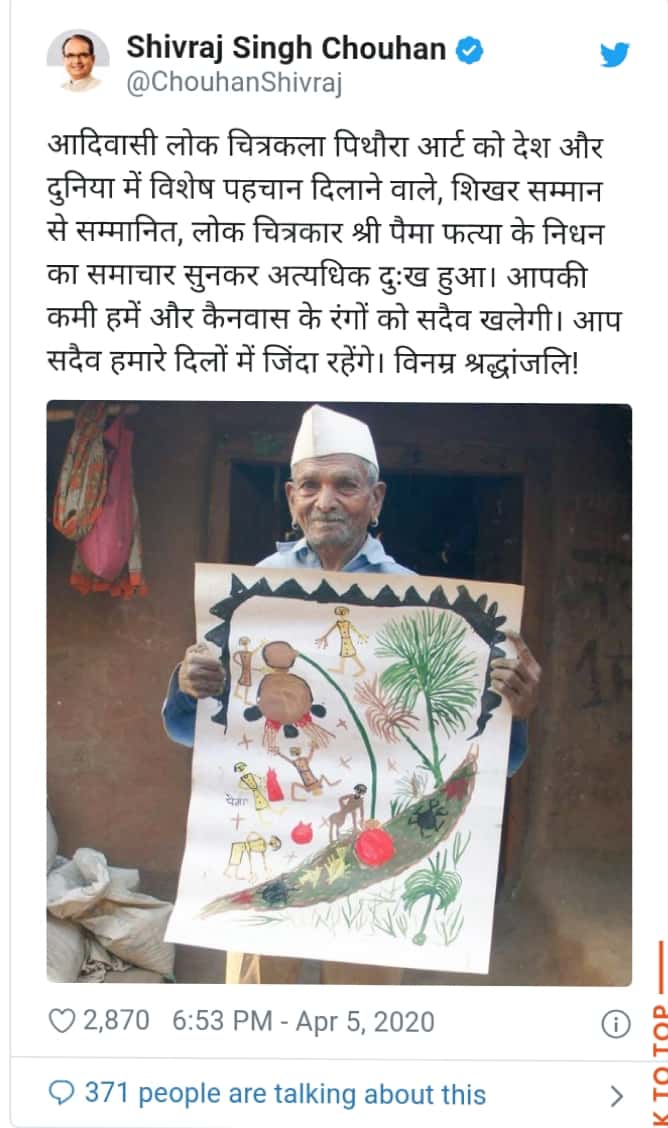 Shivraj Singh Chouhan
@ChouhanShivraj
आदिवासी लोक चित्रकला पिथौरा आर्ट को देश और
दुनिया में विशेष पहचान दिलाने वाले, शिखर सम्मान
से सम्मानित, लोक चित्रकार श्री पैमा फत्या के निधन
का समाचार सुनकर अत्यधिक दुःख हुआ। आपकी
कमी हमें और कैनवास के रंगों को सदैव खलेगी। आप
सदैव हमारे दिलों में जिंदा रहेंगे। विनम्र श्रद्धांजलि!
पेमा
2,870 6:53 PM - Apr 5, 2020
371 people are talking about this
K TO TOP